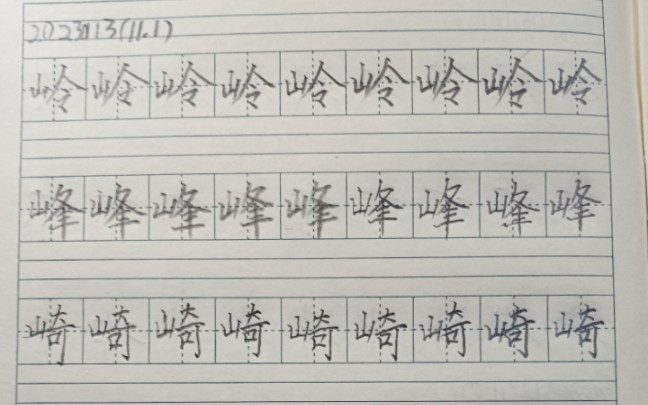 岭岭岭岭岭岭岭岭岭
峰峰峰峰峰峰峰峰峰
崎崎崎崎崎崎崎崎崎